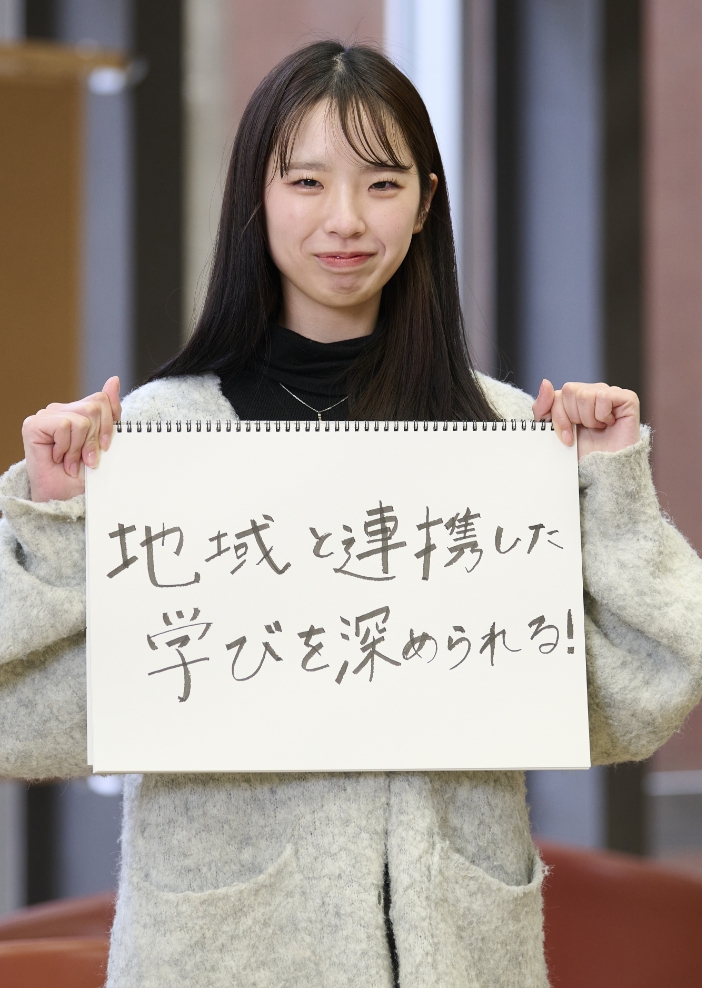 地域と連携した
学びを深められる!